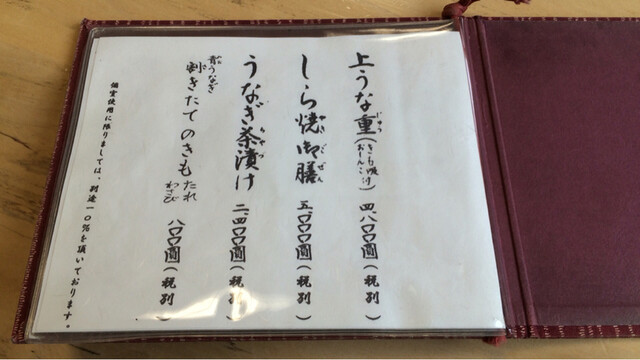 上うな重(きも吸 おしんこ付) 四、八〇〇圓(税別)
じゅう
しら焼御膳 五、〇〇〇圓(税別)
やき ごぜん
うなぎ茶漬け 二、四〇〇圓(税別)
ちゃづ
青うなぎ
剥きたてのきも たれ わさび 八〇〇圓(税別)
個室使用に限りましては、別途一〇%を頂いております。